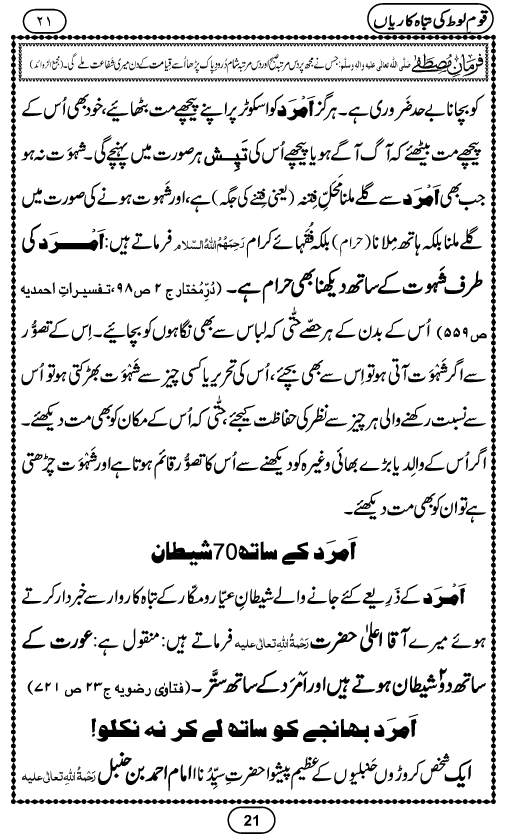 قومِ لوط کی تباہ کاریاں
۲۱
فرمانِ مصطفٰے صلی اللہ تعالیٰ علیہ والہ وسلّم: جس نے مجھ پر دس مرتبہ صبح اور دس مرتبہ شام دُرودِ پاک پڑھا اُسے قیامت کے دن میری شفاعت ملے گی۔ (مجمع الزوائد)
کو بچانا بے حد ضَروری ہے۔ ہرگز اَمْرَد کو اسکوٹر پر اپنے پیچھے مت بٹھایئے، خود بھی اُس کے
پیچھے مت بیٹھئے کہ آگ آگے ہو یا پیچھے اُس کی تَپِش ہر صورت میں پہنچے گی۔ شَہْوَت نہ ہو
جب بھی اَمْرَد سے گلے ملنا مَحَلِّ فتنہ (یعنی فتنے کی جگہ) ہے، اور شَہوت ہونے کی صورت میں
گلے ملنا بلکہ ہاتھ ملانا (حرام) بلکہ فُقَہائے کرام رَحِمَهُمُ اللهُ السّلام فرماتے ہیں: اَمْرَد کی
طرف شَہْوت کے ساتھ دیکھنا بھی حرام ہے۔ (دُرِّمُختار ج ۲ ص۹۸، تفسیراتِ احمدیہ
ص۵۵۹) اُس کے بدن کے ہر حصّے حتّٰی کہ لباس سے بھی نگاہوں کو بچایئے۔ اِس کے تصوُّر
سے اگر شَہْوَت آتی ہو تو اِس سے بھی بچئے، اُس کی تحریر یا کسی چیز سے شَہْوَت بھڑکتی ہو تو اُس
سے نسبت رکھنے والی ہر چیز سے نظر کی حفاظت کیجئے، حتّٰی کہ اُس کے مکان کو بھی مت دیکھئے۔
اگر اُس کے والِد یا بڑے بھائی وغیرہ کو دیکھنے سے اُس کا تصوُّر قائم ہوتا ہے اور شَہْوَت چڑھتی
ہے تو ان کو بھی مت دیکھئے۔
اَمرَد کے ساتھ 70 شیطان
اَمْرَد کے ذَرِیعے کئے جانے والے شیطانِ عیّار و مکّار کے تباہ کار وار سے خبردار کرتے
ہوئے میرے آقا اعلیٰ حضرت رَحْمَةُ اللهِ تعالٰی علیہ فرماتے ہیں: منقول ہے: عورت کے
ساتھ دو۲ شیطان ہوتے ہیں اور اَمْرَد کے ساتھ ستَّر۔ (فتاوٰی رضویہ ج۲۳ ص ۷۲۱)
اَمرَد بھانجے کو ساتھ لے کر نہ نکلو!
ایک شخص کروڑوں حَنبلیوں کے عظیم پیشوا حضرتِ سیِّدُنا امام احمد بن حنبل رَحْمَةُ اللهِ تعالٰی علیہ
21